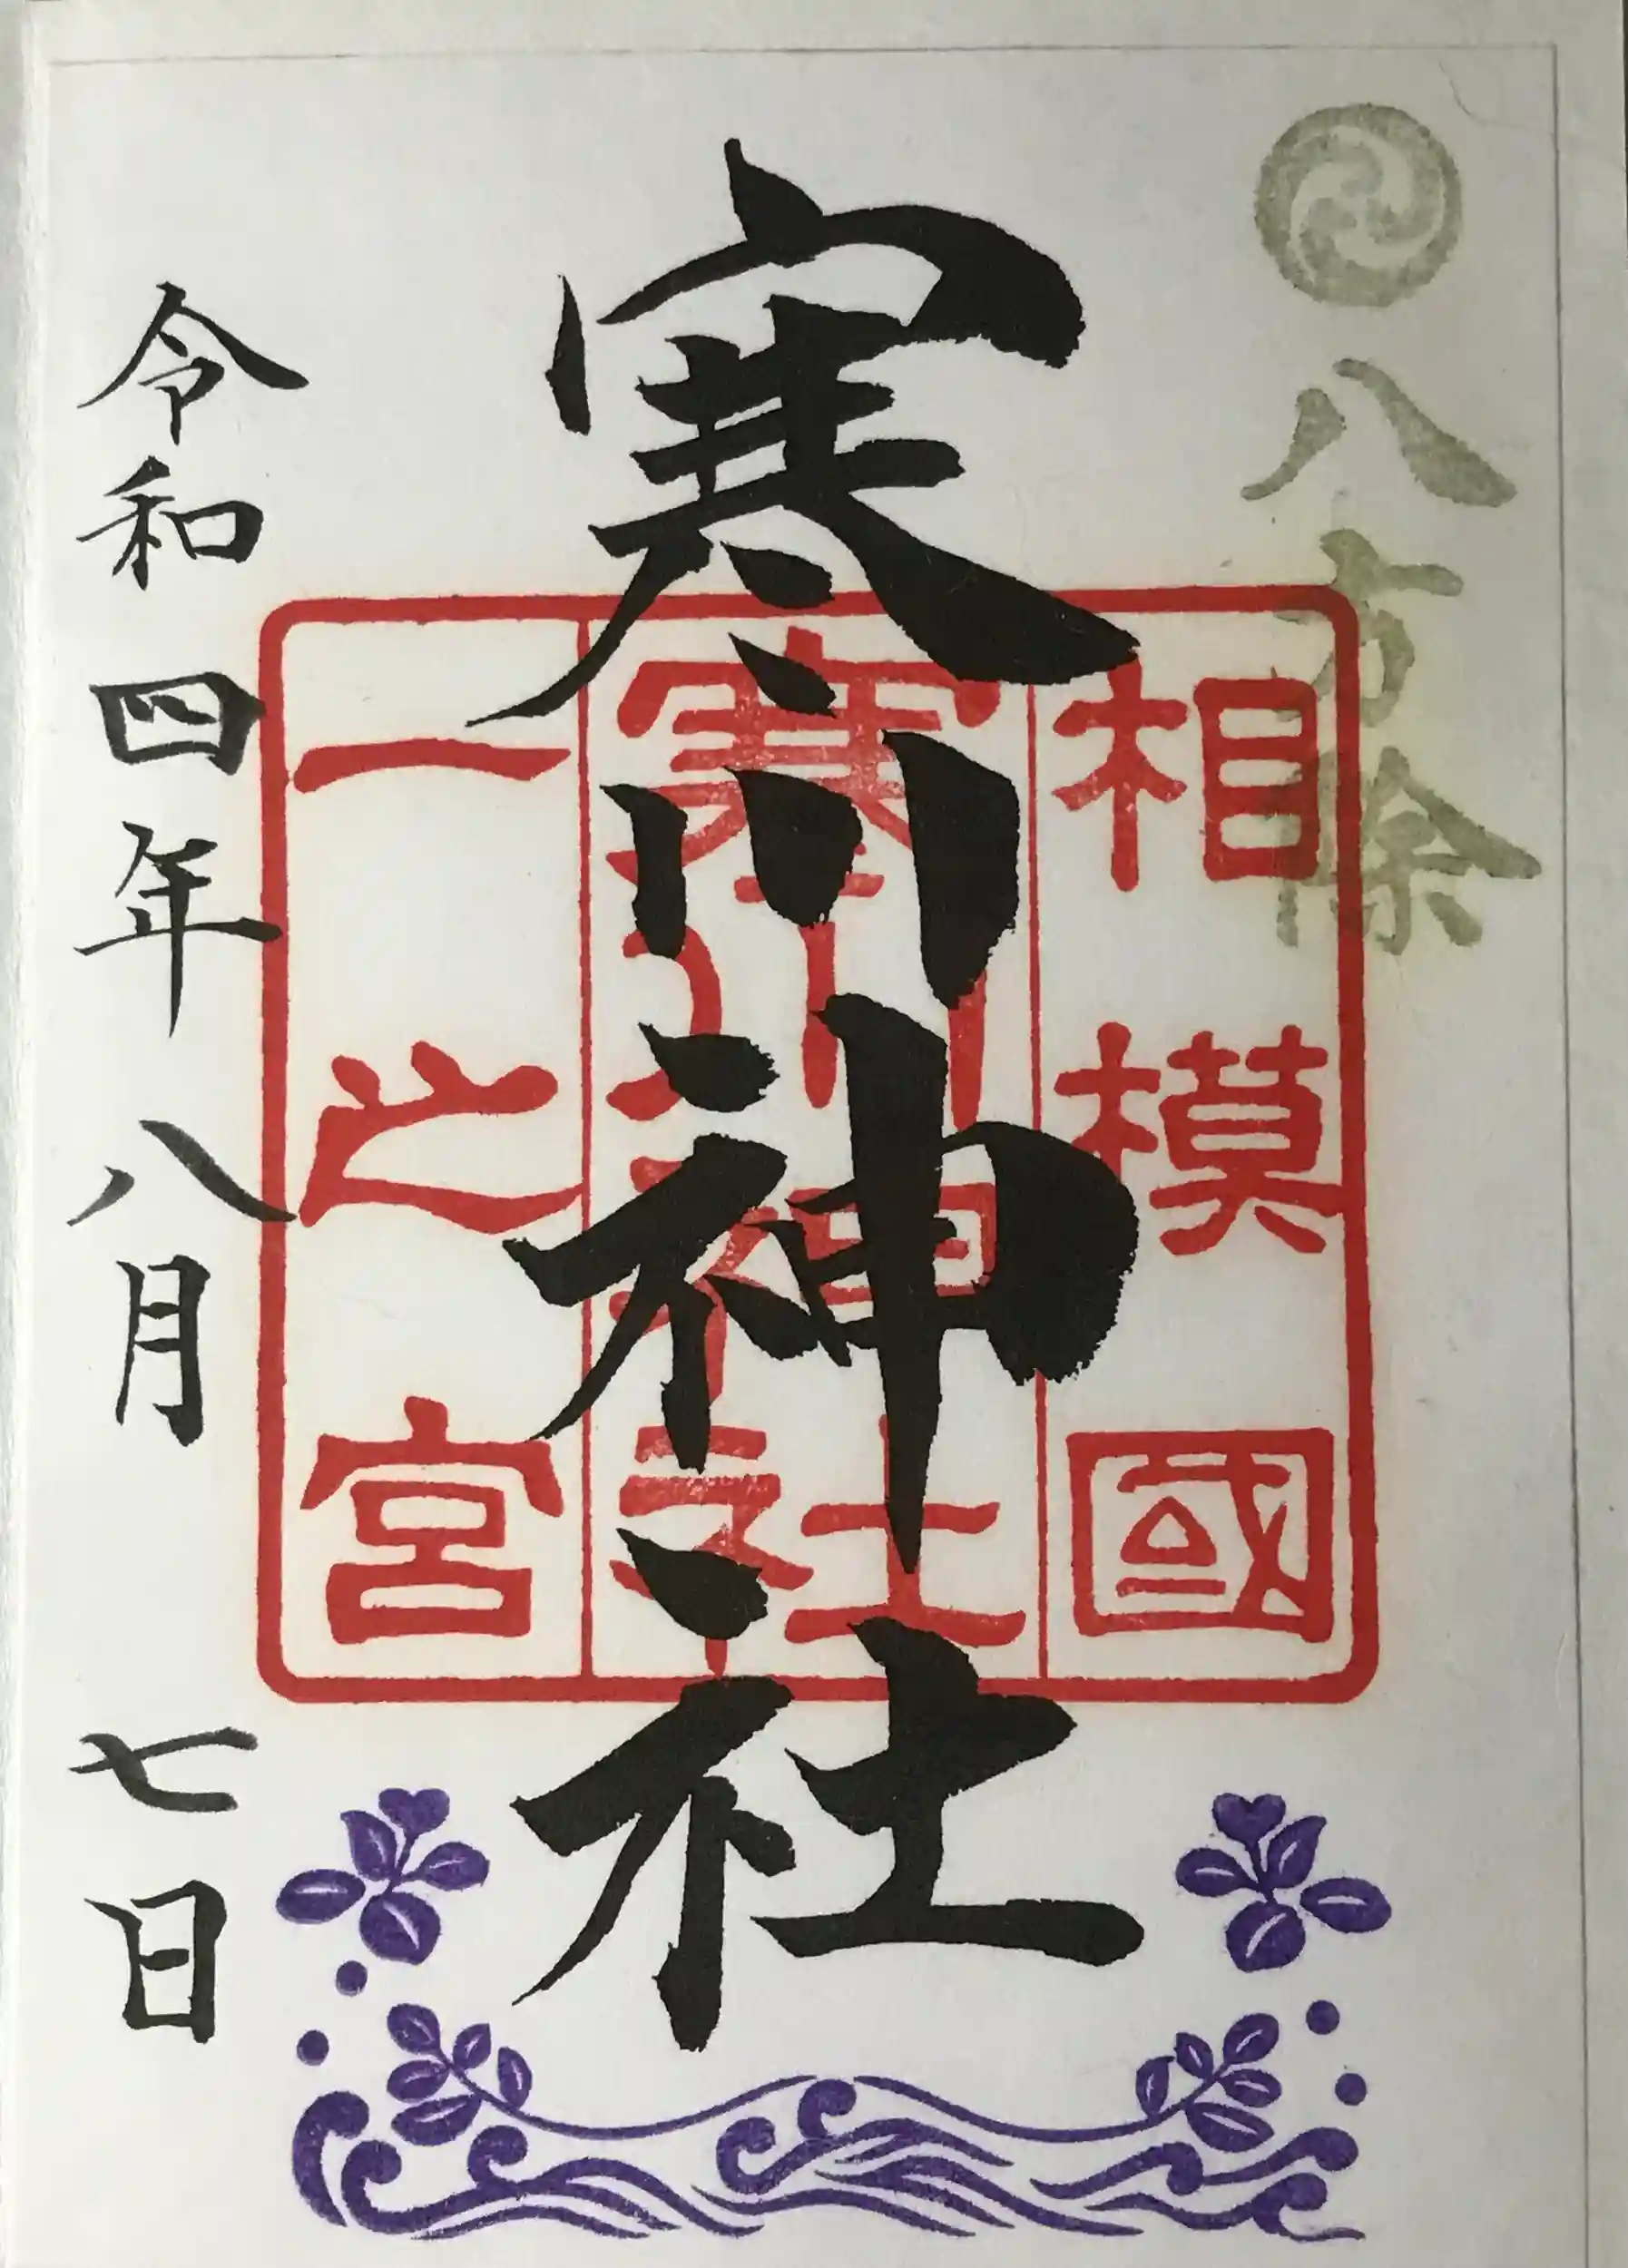 八方除
相模國
寒川神社
一之宮
寒川神社
令和四年八月七日